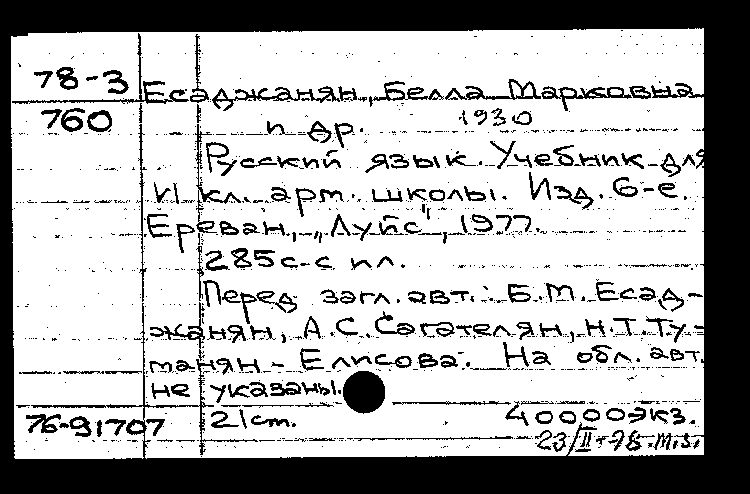 78-3 Есаджанян, Белла Марковна
760 и др. 1930
Русский язык. Учебник для
VI кл. арм. школы. Изд. 6-е.
Ереван, „Луйс", 1977.
285с. с ил.
Перед загл. авт.: Б.М.Есад-
жанян, А.С.Сагателян, Н.Т.Ту-
манян-Елисова. На обл. авт.
не указаны.
76-91707 21см. 40000экз.
23/II-78.m.s.